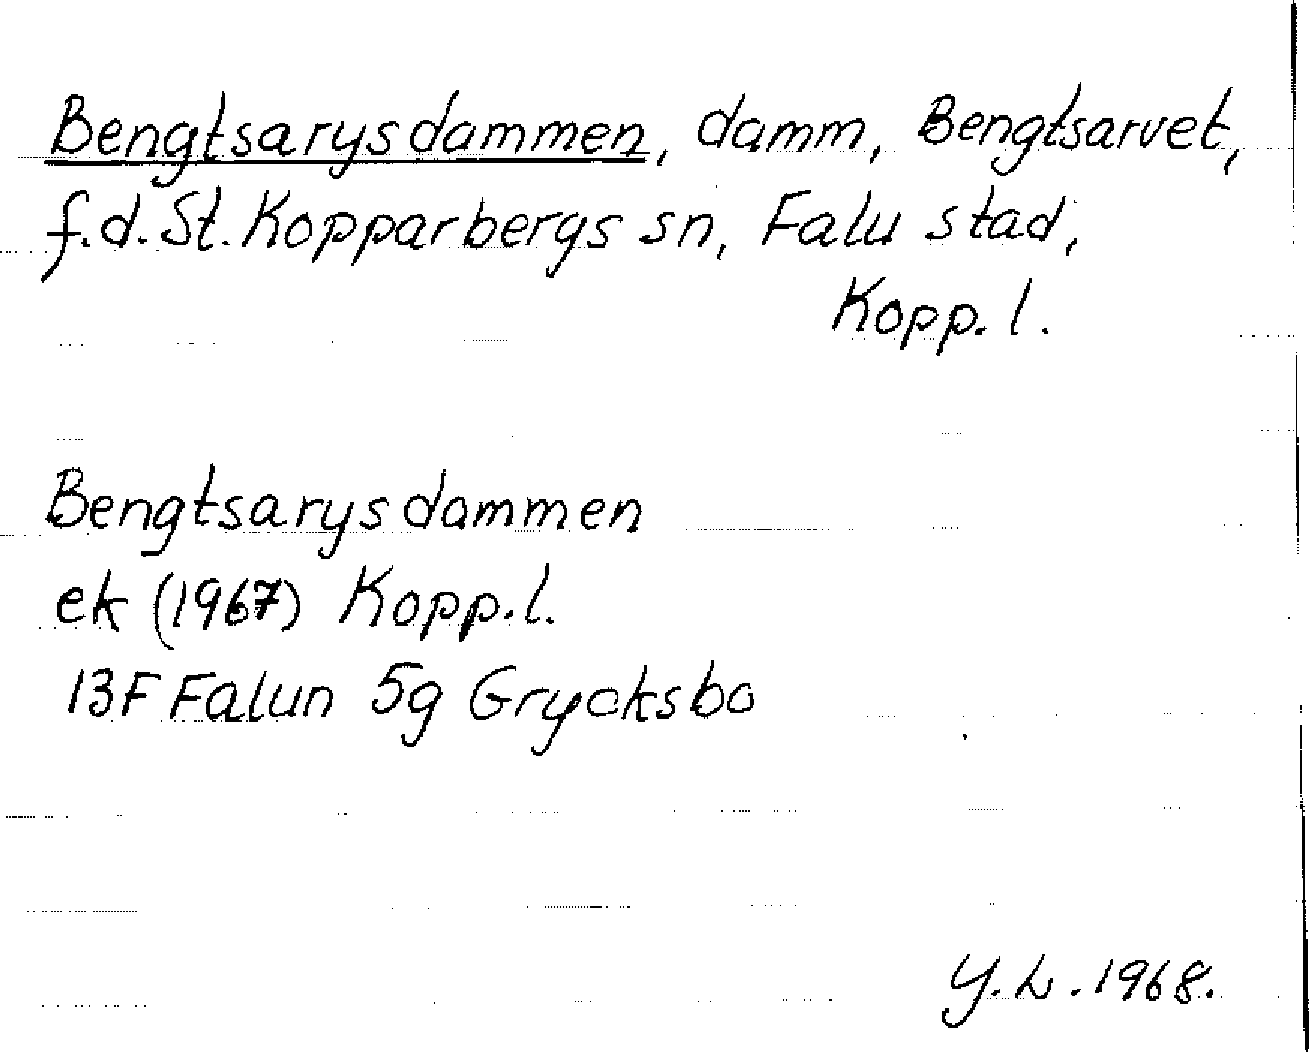 Bengtsarysdammen, damm, Bengtsarvet,
f.d. St. Kopparbergs sn, Falu stad,
Kopp. l.
Bengtsarysdammen
ek (1967) Kopp. l.
13F Falun 5g Grycksbo
Y. L. 1968.